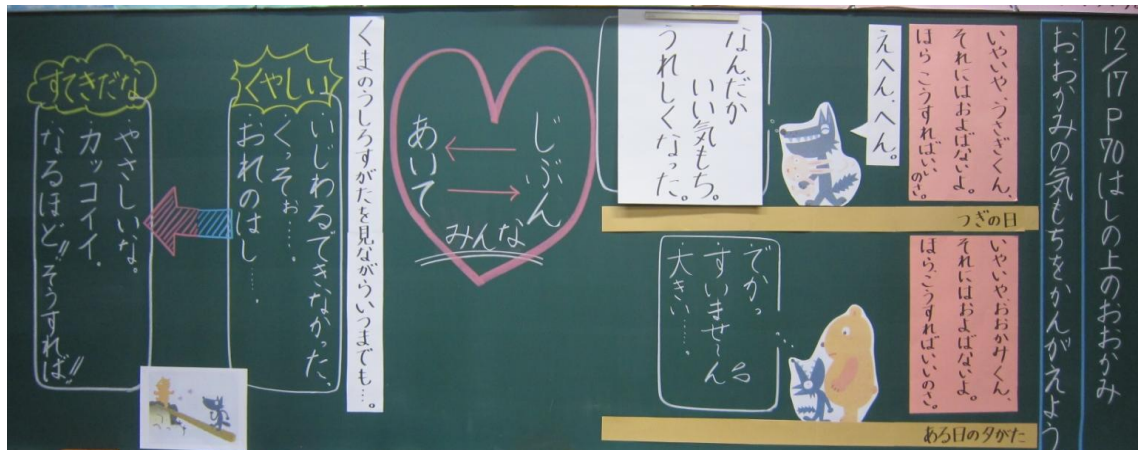 12/17 P70 はしの上のおおかみ
おおかみの気もちをかんがえよう
いやいや、うさぎくん、
それにはおよばないよ。
ほら こうすればいい
のさ。
えへん、へん。
なんだか
いい気もち。
うれしくなった。
つぎの日
いやいや、おおかみくん、
それにはおよばないよ。
ほら、こうすればいいのさ。
でかっ
すいませ〜ん
大きい……。
ある日の夕がた
じぶん
あいて
みんな
くまのうしろすがたを見ながらいつまでも…。
くやしい
いじわるできなかった、
くっそぉ……。
おれのはし……。
すてきだな
やさしいな。
カッコイイ.
なるほど!!そうすれば!!